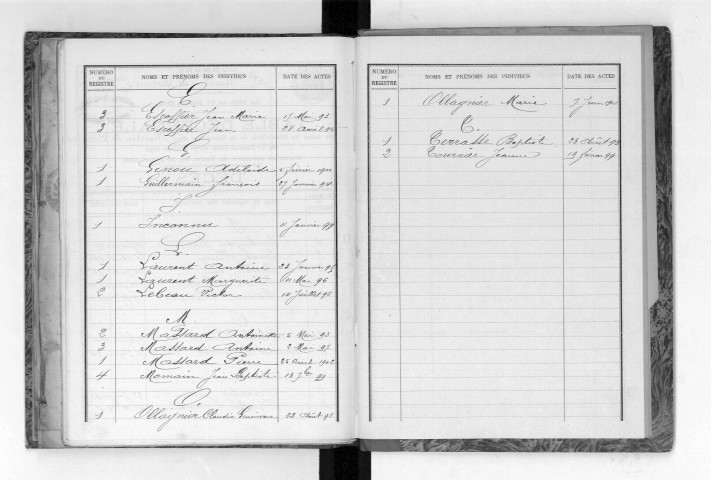 NUMÉRO DU REGISTRE NOMS ET PRÉNOMS DES INDIVIDUS DATE DES ACTES
E
3 Escoffier Jean Marie 17 Mai 93
3 Escoffier Jean 28 Avril 96
G
1 Genou Adelaide 6 février 1900
1 Guillermain François 27 Janvier 94
I
1 Inconnu 11 Janvier 99
L.
1 Laurent Antoine 23 Janvier 95
1 Laurent Marguerite 11 Mai 96
2 Lebeau Victor 10 Juillet 96
M
2 Massard Antoinette 6 Mai 93
3 Massard Antoine 2 Mai 97
1 Massard Pierre 25 Août 1902
4 Momain Jean Baptiste 13 7bre 99
O.
1 Ollagnier Claudia 22 Août 98
NUMÉRO DU REGISTRE NOMS ET PRÉNOMS DES INDIVIDUS DATE DES ACTES
1 Ollagnier Marie 7 Juin
T.
1 Terrasse Baptiste 23 Août 93
2 Tournier Jeanne 14 février 99